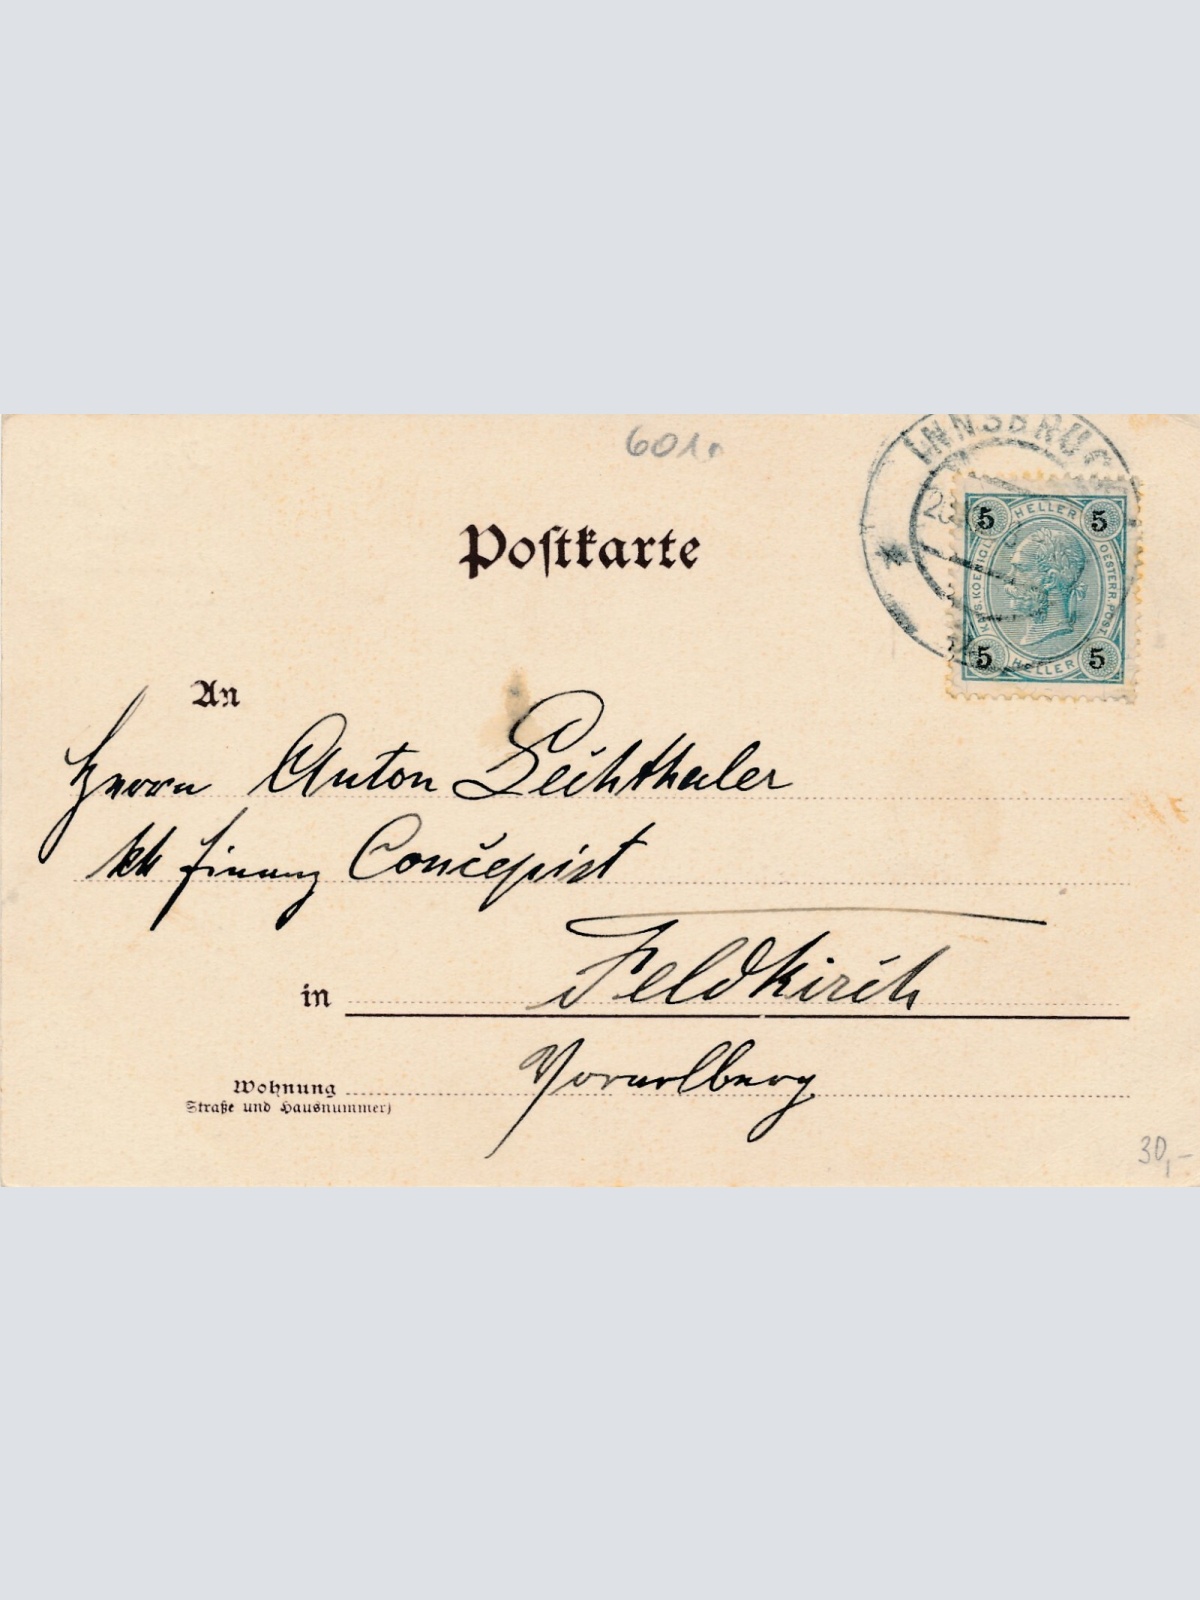 601.
INNSBRUC
5 HELLER 5
KAIS. KOENIGL. OESTERR. POST
5 HELLER 5
Postkarte
An
Herrn Anton Leichthaler
kk Finanz Concepist
in Feldkirch
Wohnung Vorarlberg
Straße und Hausnummer)
30,-